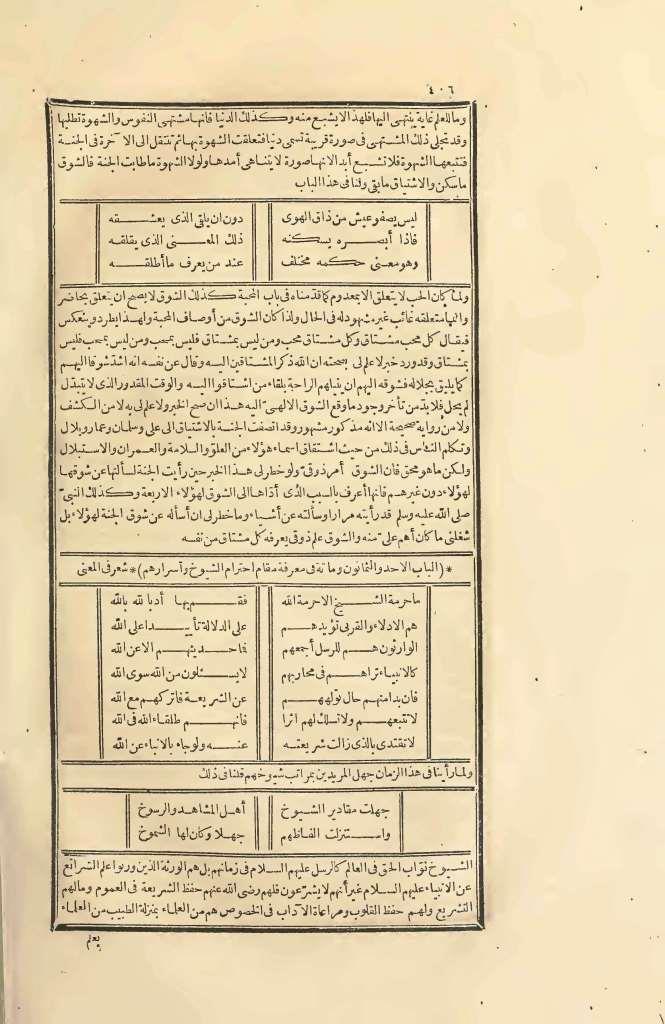 ٤٠٦
وما للعلم غاية ينتهى اليها فلهذا لا يشبع منه وكذلك الدنيا فانها مشتهى النفوس والشهوة تطلبها
وقد تجلى ذلك المشتهى فى صورة قريبة تسمى دنيا فتعلقت الشهوة بها ثم تنتقل الى الآخرة فى الجنة
فتتبعها الشهوة فلا تشبع أبدا لانها صورة لا يتناهى أمدها ولولا الشهوة ما طابت الجنة فالشوق
ما سكن والاشتياق ما بقى ولنا فى هذا الباب
ليس يصفو عيش من ذاق الهوى دون ان يلقى الذى يعشقه
فاذا أبصره يسكنه ذلك المعنى الذى يقلقه
وهو معنى حكمه مختلف عند من يعرف ما أطلقه
ولما كان الحب لا يتعلق الا بمعدوم كما قدمناه فى باب المحبة كذلك الشوق لا يصح ان يتعلق بحاضر
وانما متعلقه غائب غير مشهود له فى الحال ولذا كان الشوق من أوصاف المحبة ولهذا يطرد وينعكس
فيقال كل محب مشتاق وكل مشتاق محب ومن ليس بمشتاق فليس بمحب ومن ليس بمحب فليس
بمشتاق وقد ورد خبر لا علم لى بصحته ان الله ذكر المشتاقين اليه وقال عن نفسه انه اشد شوقا اليهم
كما يليق بجلاله فشوقه اليهم ان ينيلهم الراحة بلقاء من اشتاقوا اليه والوقت المقدور الذى لا يتبدل
لم يحل فلا بد من تأخر وجود ما وقع الشوق الالهى اليه هذا ان صح الخبر ولا علم لى به لا من الكشف
ولا من رواية صحيحة الا انه مذكور مشهور وقد اتصفت الجنة بالاشتياق الى على وسلمان وعمار وبلال
وتكلم الناس فى ذلك من حيث اشتقاق اسماء هؤلاء من العلو والسلامة والعمران والاستبلال
ولكن ما هو محقق فان الشوق أمر ذوقى ولو خطر لى هذا الخبر حين رأيت الجنة لسألتها عن شوقها
لهؤلاء دون غيرهم فانها أعرف بالسبب الذى أداها الى الشوق لهؤلاء الاربعة وكذلك النبى
صلى الله عليه وسلم قد رأيته مرارا وسألته عن أشياء وما خطر لى ان أسأله عن شوق الجنة لهؤلاء بل
شغلنى ما كان أهم على منه والشوق علم ذوقى يعرفه كل مشتاق من نفسه
*(الباب الاحد والثمانون ومائة فى معرفة مقام احترام الشيوخ وأسرارهم)* شعر فى المعنى
ما حرمة الشيخ الا حرمة الله فقم بها أدبا لله بالله
هم الادلاء والقربى تؤيدهم على الدلالة تأييدا على الله
الوارثون هم للرسل أجمعهم فما حديثهم الا عن الله
كالانبياء تراهم فى محاربهم لا يسئلون من الله سوى الله
فان بدا منهم حال تولههم عن الشريعة فاتركهم مع الله
لا تتبعهم ولا تسلك لهم اثرا فانهم طلقاء الله فى الله
لا تقتدى بالذى زالت شريعته عنه ولو جاء بالانباء عن الله
ولما رأينا فى هذا الزمان جهل المريدين بمراتب شيوخهم قلنا فى ذلك
جهلت مقادير الشيوخ أهل المشاهد والرسوخ
واستنزلت الفاظهم جهلا وكان لها الشموخ
الشيوخ نواب الحق فى العالم كالرسل عليهم السلام فى زمانهم بل هم الورثة الذين ورثوا علم الشرائع
عن الانبياء عليهم السلام غير أنهم لا يشرعون فلهم رضى الله عنهم حفظ الشريعة فى العموم وما لهم
التشريع ولهم حفظ القلوب ومراعاة الآداب فى الخصوص هم من العلماء بمنزلة الطبيب من العلماء
يعلم